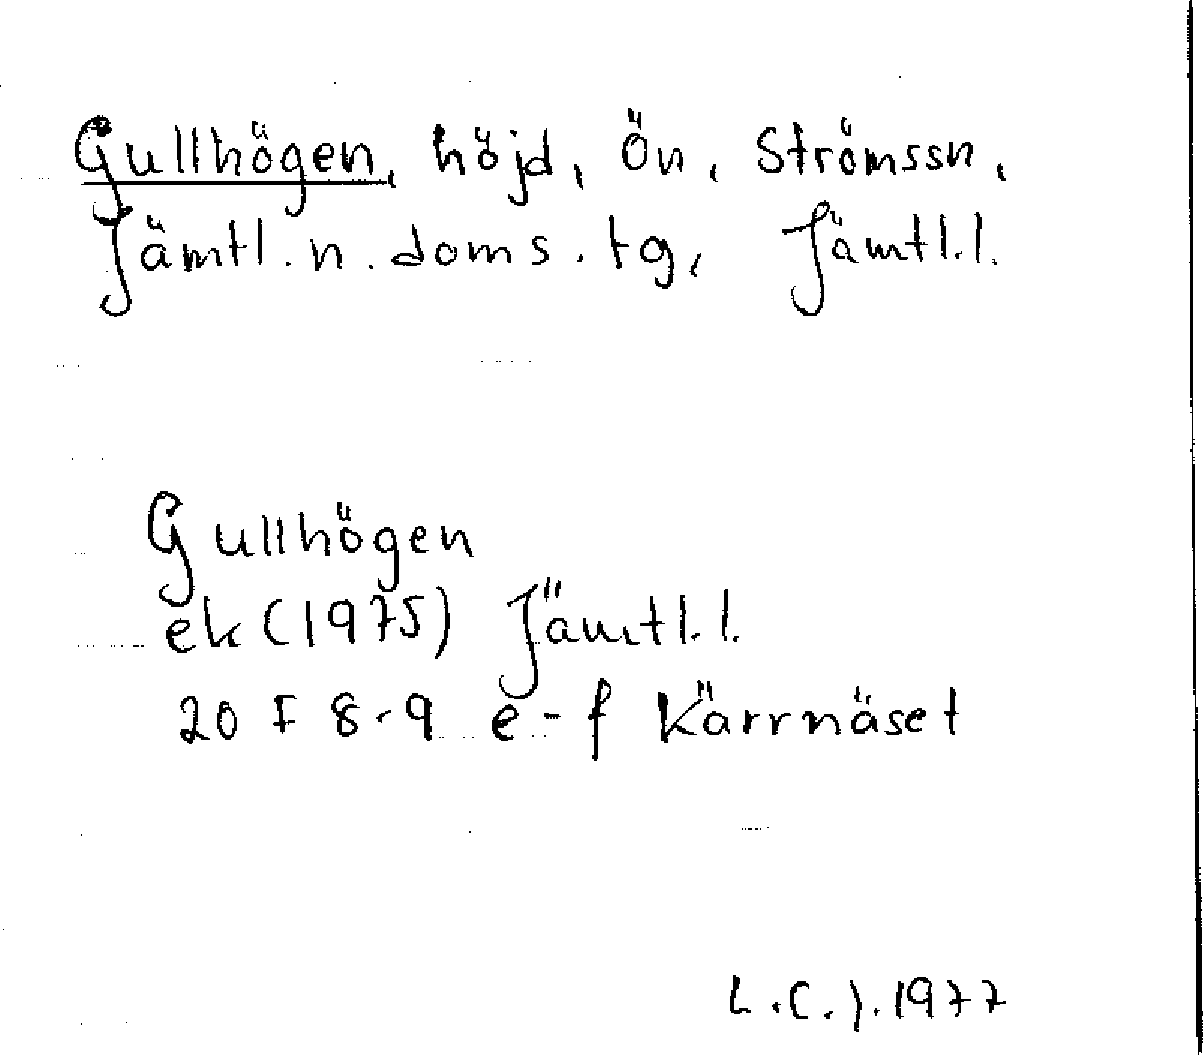 Gullhögen, höjd, Ön, Strömssn,
Jämtl. n. doms. tg, Jämtl. l.
Gullhögen
ek (1975) Jämtl. l.
20 F 8-9 e-f Kärrnäset
L.C.J. 1977